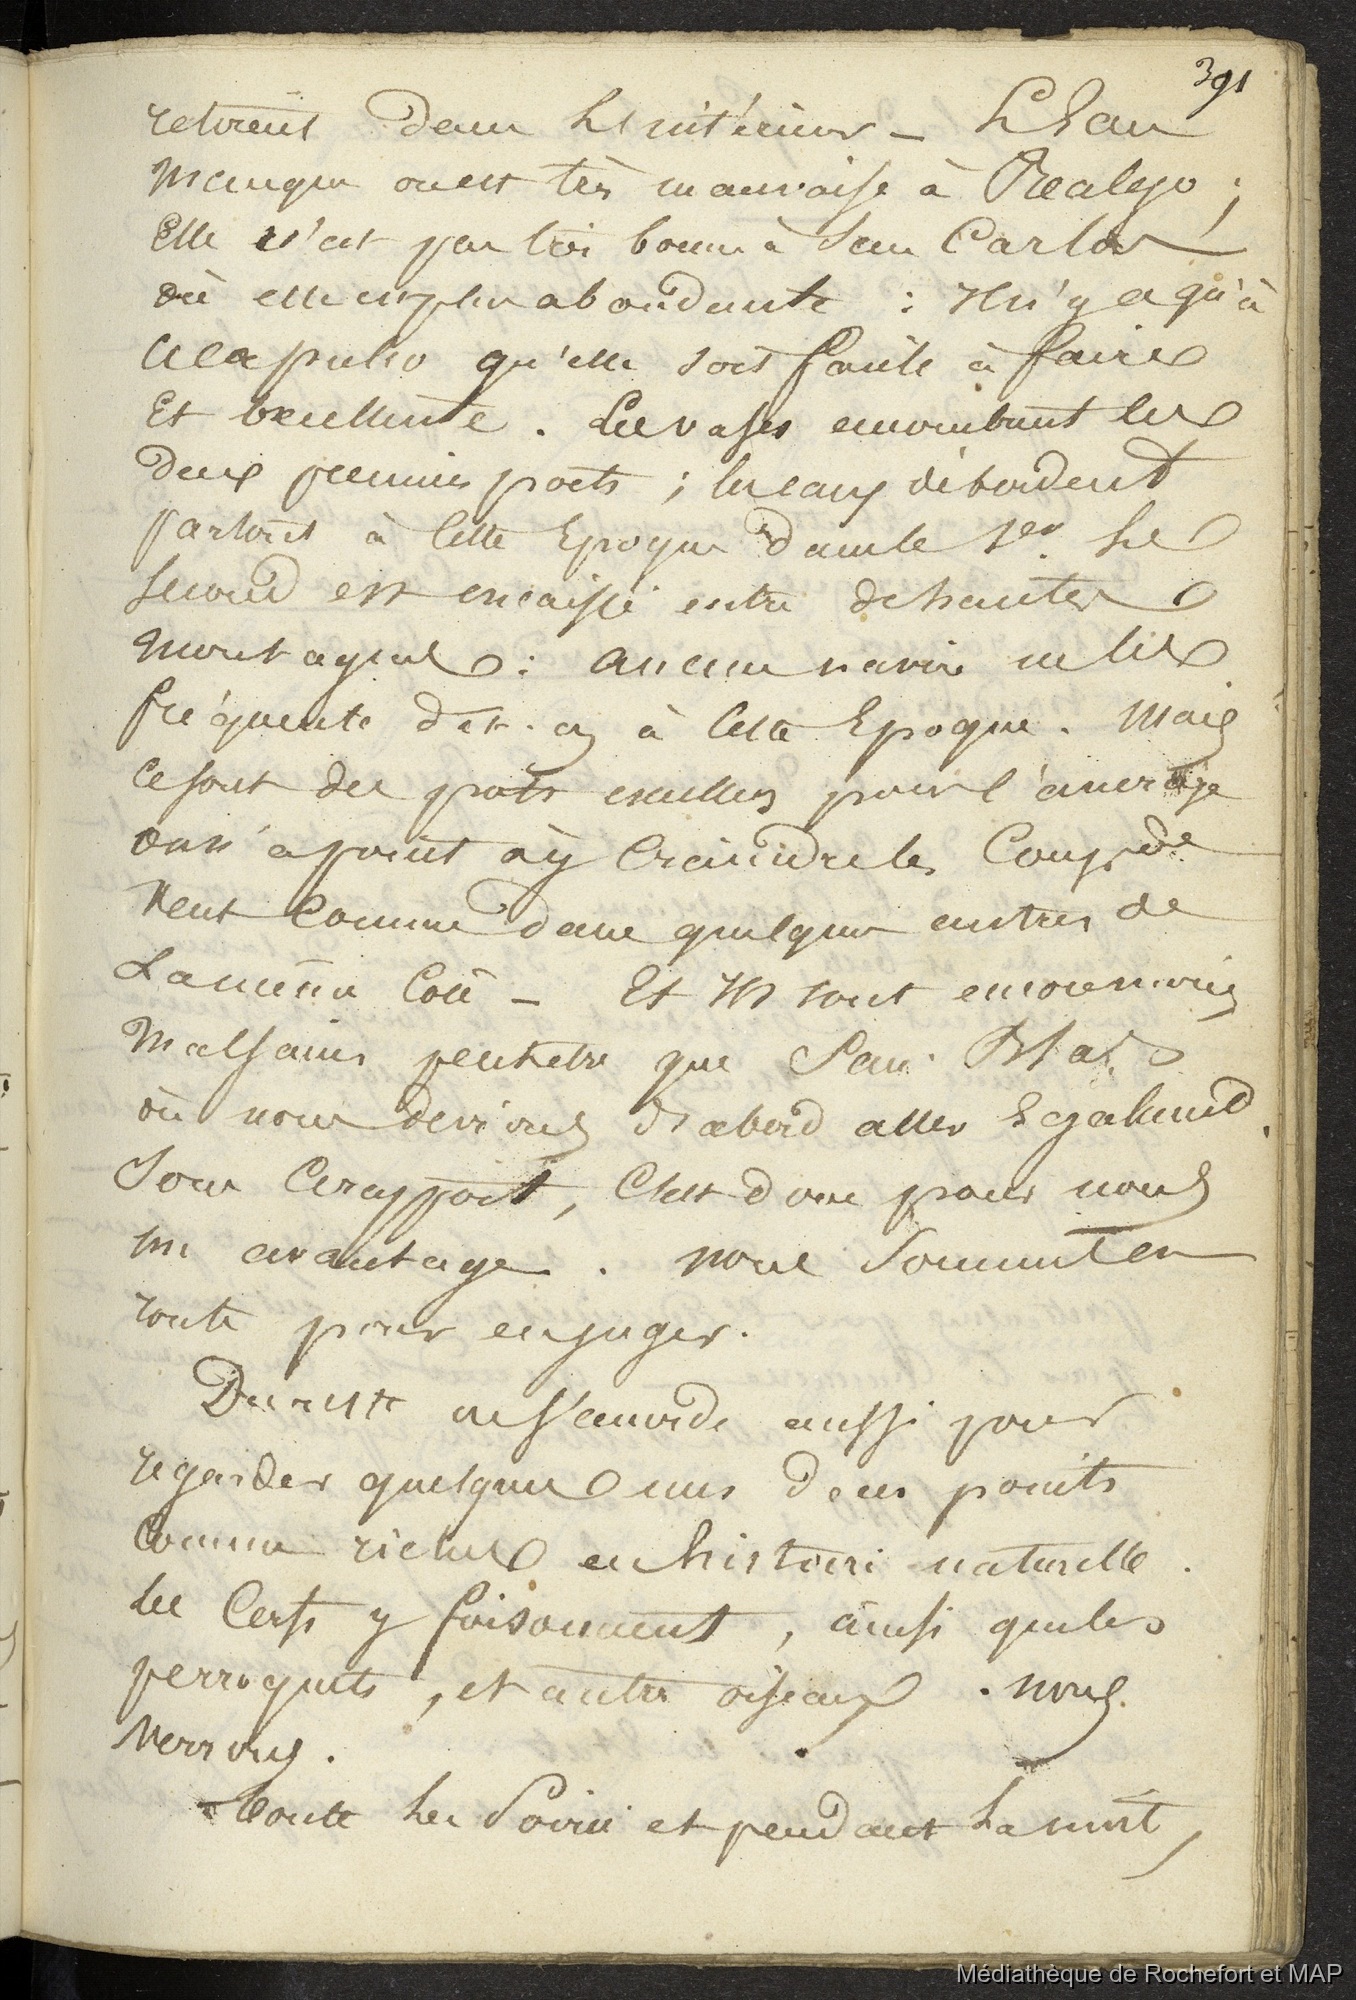 391
retirent dans L'intérieur — L'Eau
manque ou est très mauvaise à Realejo ;
Elle n'est pas très bonne à San Carlos
où elle est plus abondante : Il n'y a qu'à
Acapulco qu'elle soit facile à faire
Et Excellente . Les vases encombrent les
deux premiers ports ; les eaux débordent
partout à Cette Epoque dans le 1er. Le
second est encaissé entre de hautes
montagnes : aucun navire ne les
fréquente à Cette Epoque . Mais
Ce sont des ports excellens pour l'ancrage
on n'a point à y Craindre les Coups de
Vent Comme dans quelques autres de
La même Côte — Et Ils sont encore moins
Malsains peutetre que San Blas
où nous devions d'abord aller Egalement
Sous Ce rapport, C'est donc pour nous
un avantage . nous Sommes en
route pour en juger .
Du reste on s'accorde aussi pour
regarder quelques uns de ces points
Comme riches en histoire naturelle .
Les Cerfs y foisonnent , ainsi que les
perroquets , et autres oiseaux . Nous
Verrons .
Toute La Soirée et pendant La nuit ,
Médiathèque de Rochefort et MAP